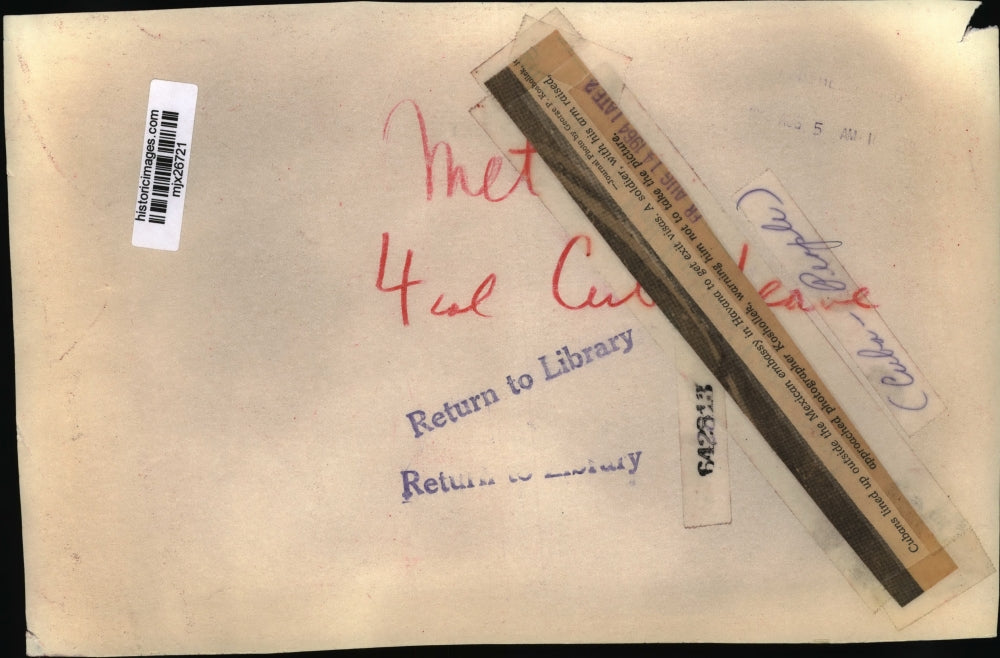 historicimages.com
mjx26721
Met
4 col Leave
Return to Library
Return to
642813
5 AM
(Cuba - People)
FR AUG 14 1964 LATE2
—Journal Photo by George P. Koshollek,
Cubans lined up outside the Mexican embassy in Havana to get exit visas. A soldier, with his arm raised,
approached photographer Koshollek, warning him not to take the picture.